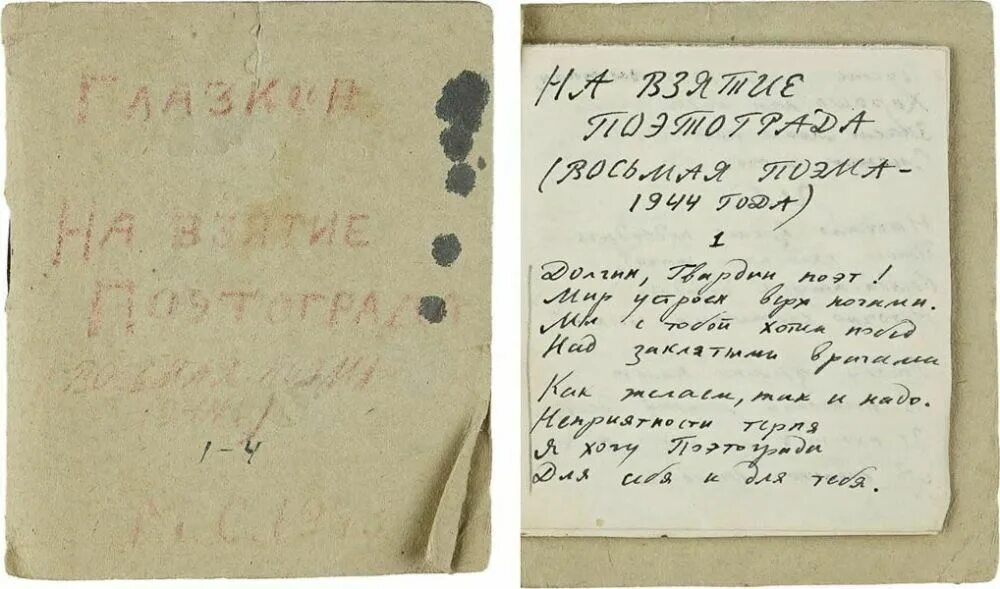 Глазков
На взятие
Поэтограда
восьмая поэма
1-4
М. С. 194
НА ВЗЯТИЕ
ПОЭТОГРАДА
(ВОСЬМАЯ ПОЭМА-
1944 ГОДА)
1
Долгин, Гвардии поэт!
Мир устроен вверх ногами.
Мы с тобой хотим побед
Над заклятыми врагами
Как желаем, так и надо.
Неприятности терпя
Я хочу Поэтограда
Для себя и для тебя.